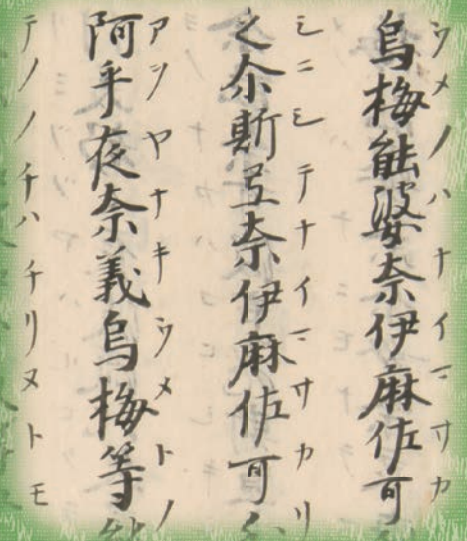 ウメノハナイマサカ
烏梅能婆奈伊麻佐可
シニシテナイマサカリ
尒斯弖奈伊麻佐可
アヲヤナキウメトノ
阿乎夜奈義烏梅等
テノノチハチリヌトモ